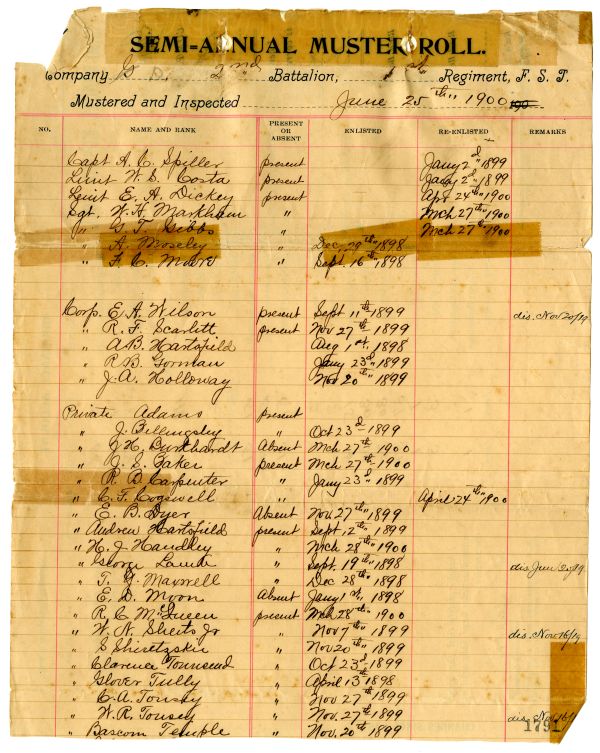 SEMI=ANNUAL MUSTER ROLL.
Company G 2nd Battalion, 1st Regiment, F. S. T.
Mustered and Inspected June 25th 1900
NO. NAME AND RANK PRESENT OR ABSENT ENLISTED RE-ENLISTED REMARKS
Capt A. C. Spiller present Jany 2d 1899
Lieut W. S. Costa present Jany 2d 1899
Lieut E. A. Dickey present Apr 24th 1900
Sgt. W. H. Markham " Mch 27th 1900
" G. T. Gibbs Mch 27th 1900
" A. Moseley " Dec 29th 1898
" F. C. Moore " Sept. 16th 1898
Corp. E. A. Wilson present Sept 11th 1899 dis. Nov 20/99
" R. F. Scarlett present Nov 27th 1899
" A. B. Hartsfield Aug 1st 1898
" R. B. Gorman Jany 23d 1899
" J. A. Holloway Nov 20th 1899
Private Adams present
" J. Billingsley " Oct 23d 1899
" J. H. Burkhardt Absent Mch 27th 1900
" J. S. Baker present Mch 27th 1900
" R. D. Carpenter " Jany 23d 1899
" C. F. Cogswell " April 24th 1900
" E. B. Dyer Absent Nov 27th 1899
" Andrew Hartsfield present Sept 12th 1899
" H. J. Handley " Mch 28th 1900
" George " Sept. 19th 1898 dis
" T. G. Maxwell " Dec 28th 1898
" E. D. Absent Jany 1st 1898
" R. C. McQueen present Mch 28th 1900
" W. N. Sheets Jr " Nov 7th 1899 dis. Nov 16/99
" S " Nov 20th 1899
" Clarence Townsend " Oct 23d 1899
" Glover Tully " April 13th 1898
" C. A. Tousey " Nov 27th 1899
" W. R. Tousey " Nov. 27th 1899 dis. Nov 16/
" Bascom Temple " Nov. 20th 1899
179